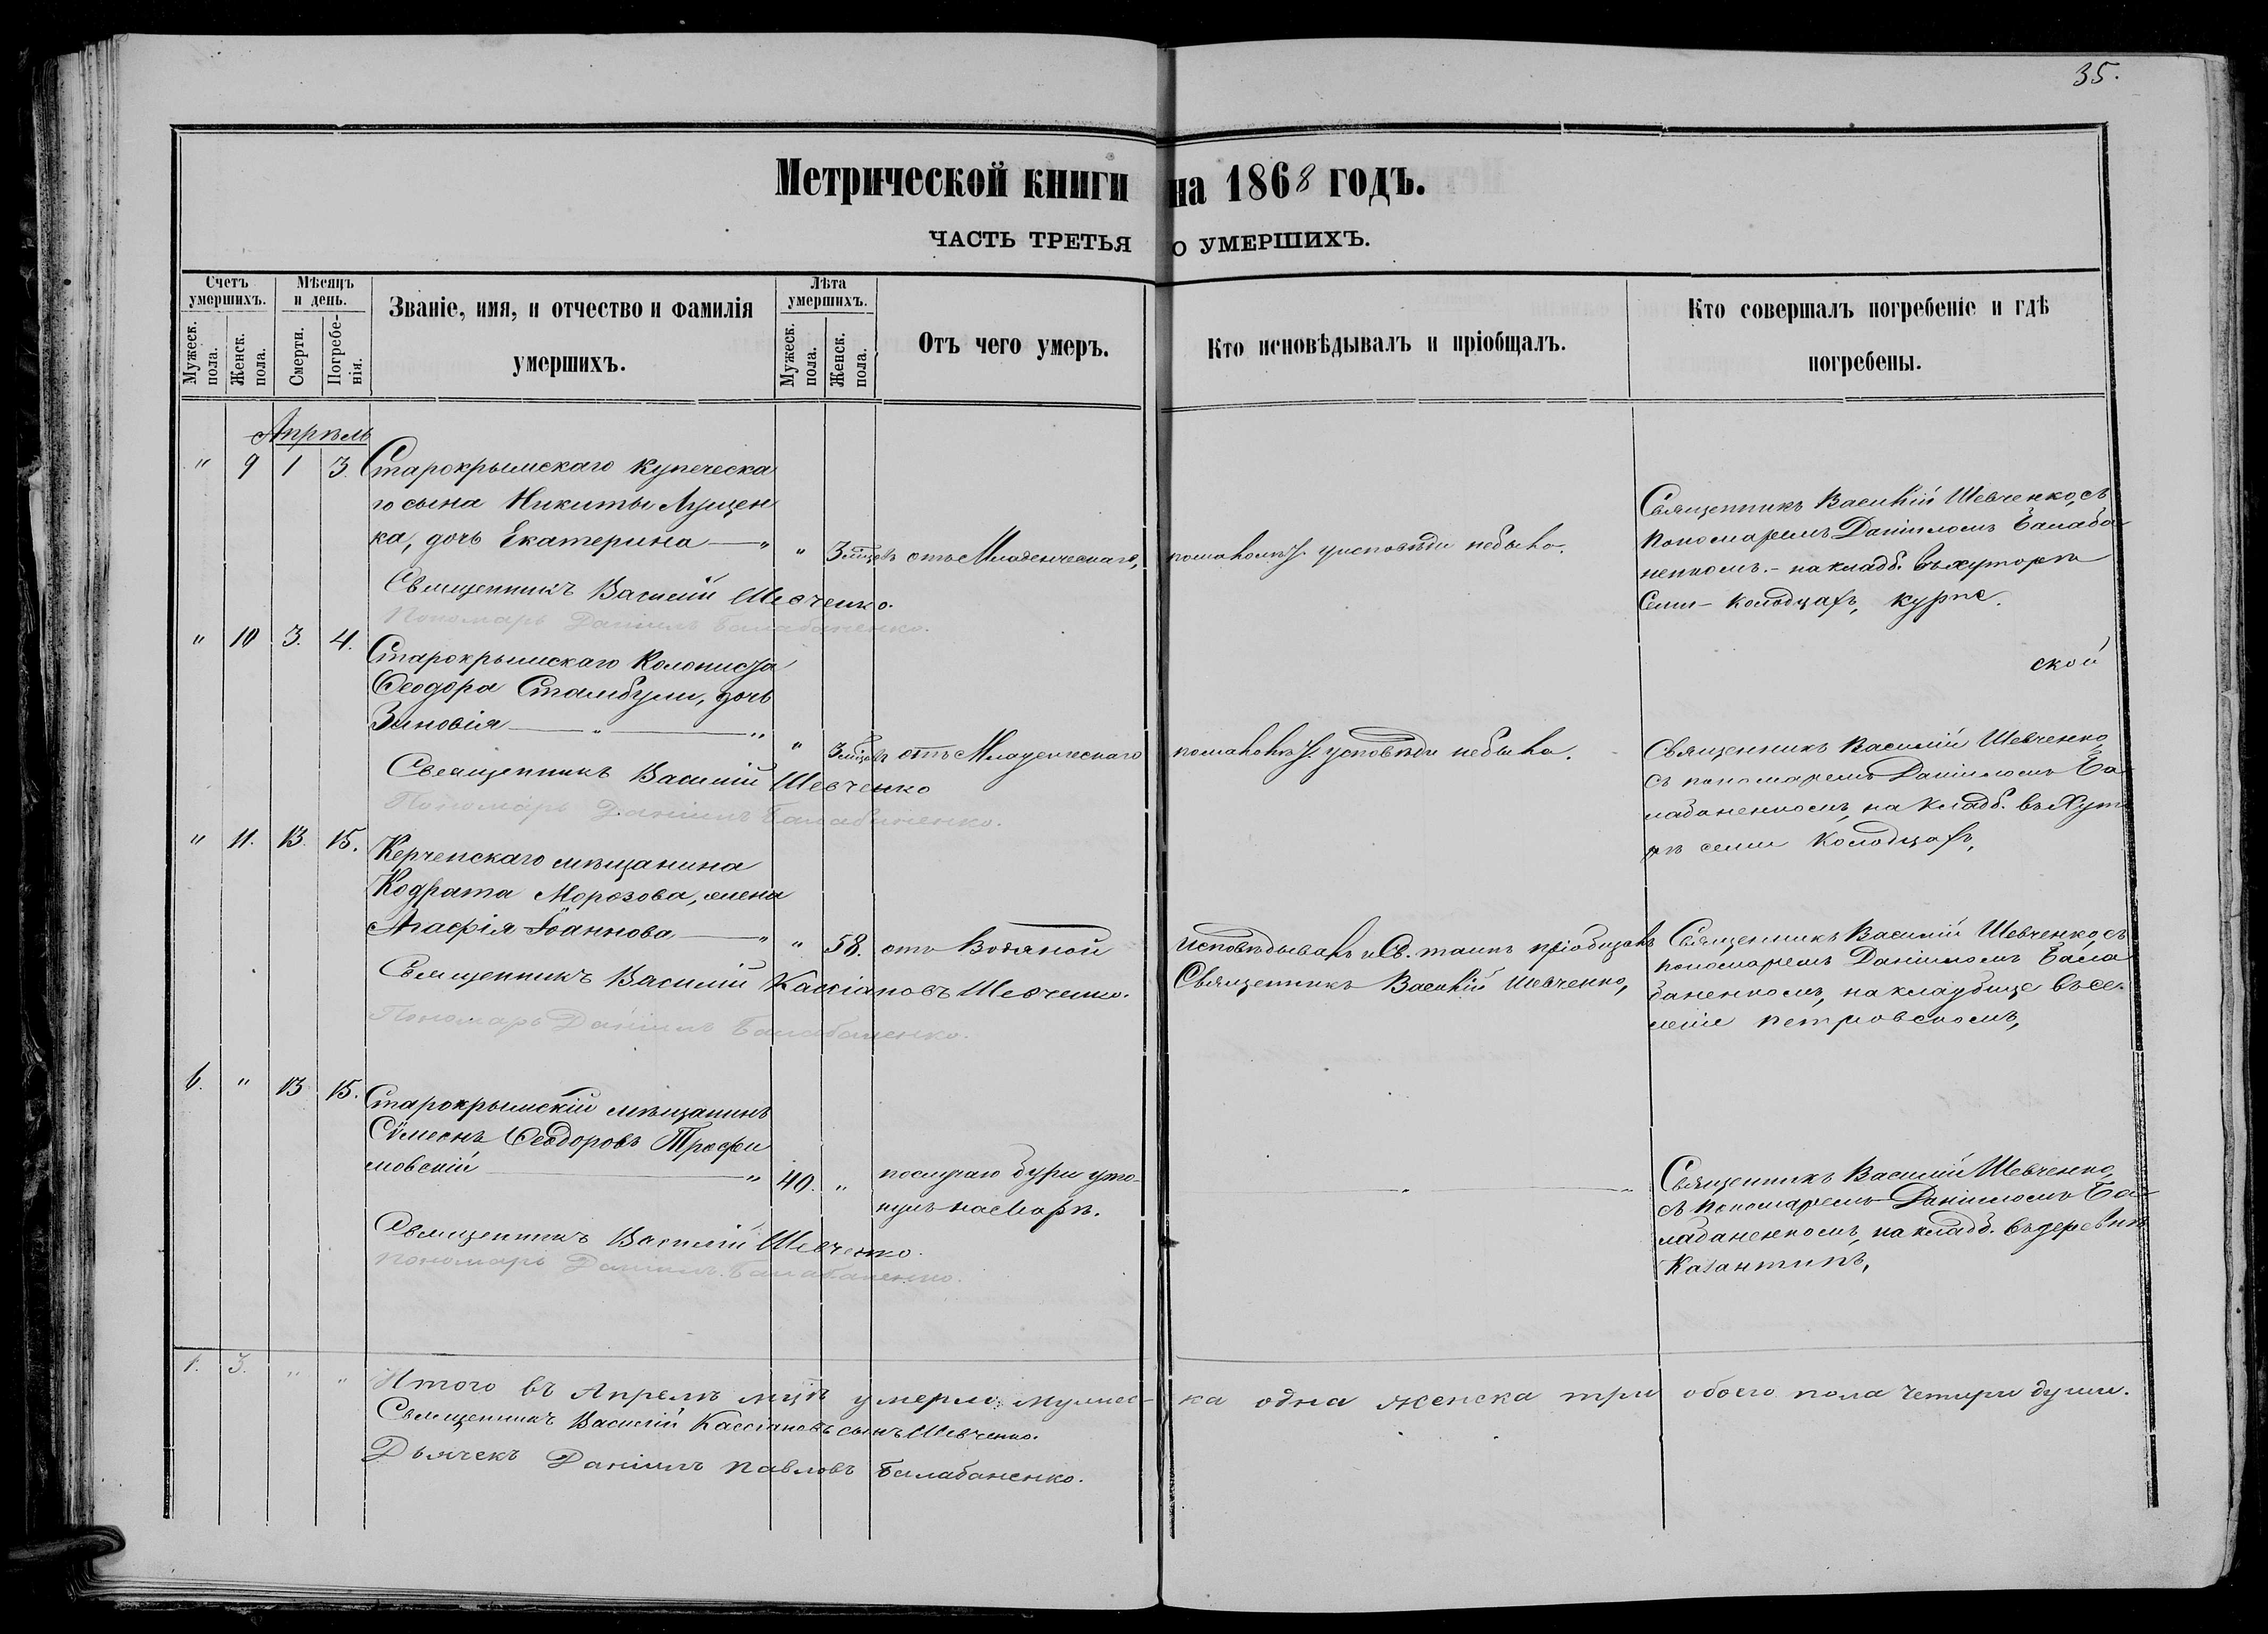 35.
Метрической книги на 1868 годъ.
ЧАСТЬ ТРЕТЬЯ О УМЕРШИХЪ.
Счетъ умершихъ.
Мужеск. пола.
Женск. пола.
Мѣсяцъ и день.
Смерти.
Погребенія.
Званіе, имя, и отчество и фамилія
умершихъ.
Лѣта умершихъ.
Мужеск. пола.
Женск. пола.
Отъ чего умеръ.
Кто исповѣдывалъ и пріобщалъ.
Кто совершалъ погребеніе и гдѣ
погребены.
Апрѣль
" 9 1 3. Старокрымскаго купеческа
го сына Никиты Лущен
ка, дочь Екатерина — " " 3 мѣцовъ отъ Младенческаго, исповѣди небыло.
Священникъ Василій Шевченко, съ
пономаремъ Даніиломъ Балаба
ненкомъ. - на кладб. въ хуторѣ
Семи - Колодцахъ,
ской
Священникъ Василій Шевченко.
Пономарь Даніилъ Балабаненко.
" 10 3. 4. Старокрымскаго Колониста
Ѳеодора Стамбули, дочь
Зиновія — " — " " 3 мѣцовъ отъ Младенческаго исповѣди небыло.
Священникъ Василій Шевченко,
съ пономаремъ Даніиломъ Ба
лабаненкомъ, на кладб. въ Хуто
рѣ семи Колодцахъ,
Священникъ Василій Шевченко
Пономарь Даніилъ Балабаненко.
" 11. 13. 15. Керченскаго мѣщанина
Кодрата Морозова, жена
Агафія Іоаннова — " " 58. отъ Водяной
Исповѣдывалъ и Св. таинъ пріобщалъ
Священникъ Василій Шевченко,
Священникъ Василій Шевченко, съ
пономаремъ Даніиломъ Бала
баненкомъ, на кладбище въ се-
леніи петровскомъ,
Священникъ Василій Кассіановъ Шевченко.
Пономарь Даніилъ Балабаненко.
6. " 13 15. Старокрымскій мѣщанинъ
Сѵмеонъ Ѳеодоровъ Трофи
мовскій — " 40. " послучаю бури уто-
нулъ на Морѣ.
— " — "
Священникъ Василій Шевченко,
съ пономаремъ Даніиломъ Ба-
лабаненкомъ, на кладб. въ деревнѣ
Казантипъ,
Священникъ Василій Шевченко.
Пономарь Даніилъ Балабаненко.
1. 3. " " Итого въ Апрелѣ мцѣ умерло: мужес-ка одна женска три обоего пола четыри души.
Священникъ Василій Кассіановъ сынъ Шевченко.
Дьячекъ Даніилъ Павловъ Балабаненко.